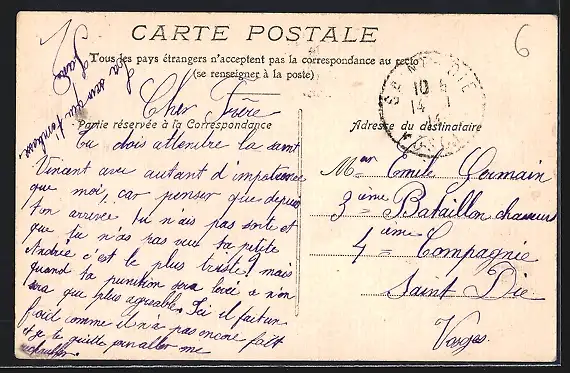 CARTE POSTALE
Tous les pays étrangers n'acceptent pas la correspondance au recto
(se renseigner à la poste)
6
Cher Frère
Partie réservée à la Correspondance
Adresse du destinataire
Tu dois attendre la saint
Vincent avec autant d'impatience
que moi, car penser que depuis
ton arrivée tu n'ais pas sortie et
que tu n'as pas vue ta petite
André c'est le plus triste! mais
quand ta punition sera levée ce n'en
sera que plus agréable. Ici il fait un
froid comme il n'a pas encore fait
et je te quitte pour aller me
La sœur qui t'embrasse
Mr Emile Germain
3ième Bataillon chasseurs
4ième Compagnie
Saint Die
Vosges.
SAINT-DIÉ
10
14 - 1
VOSGES